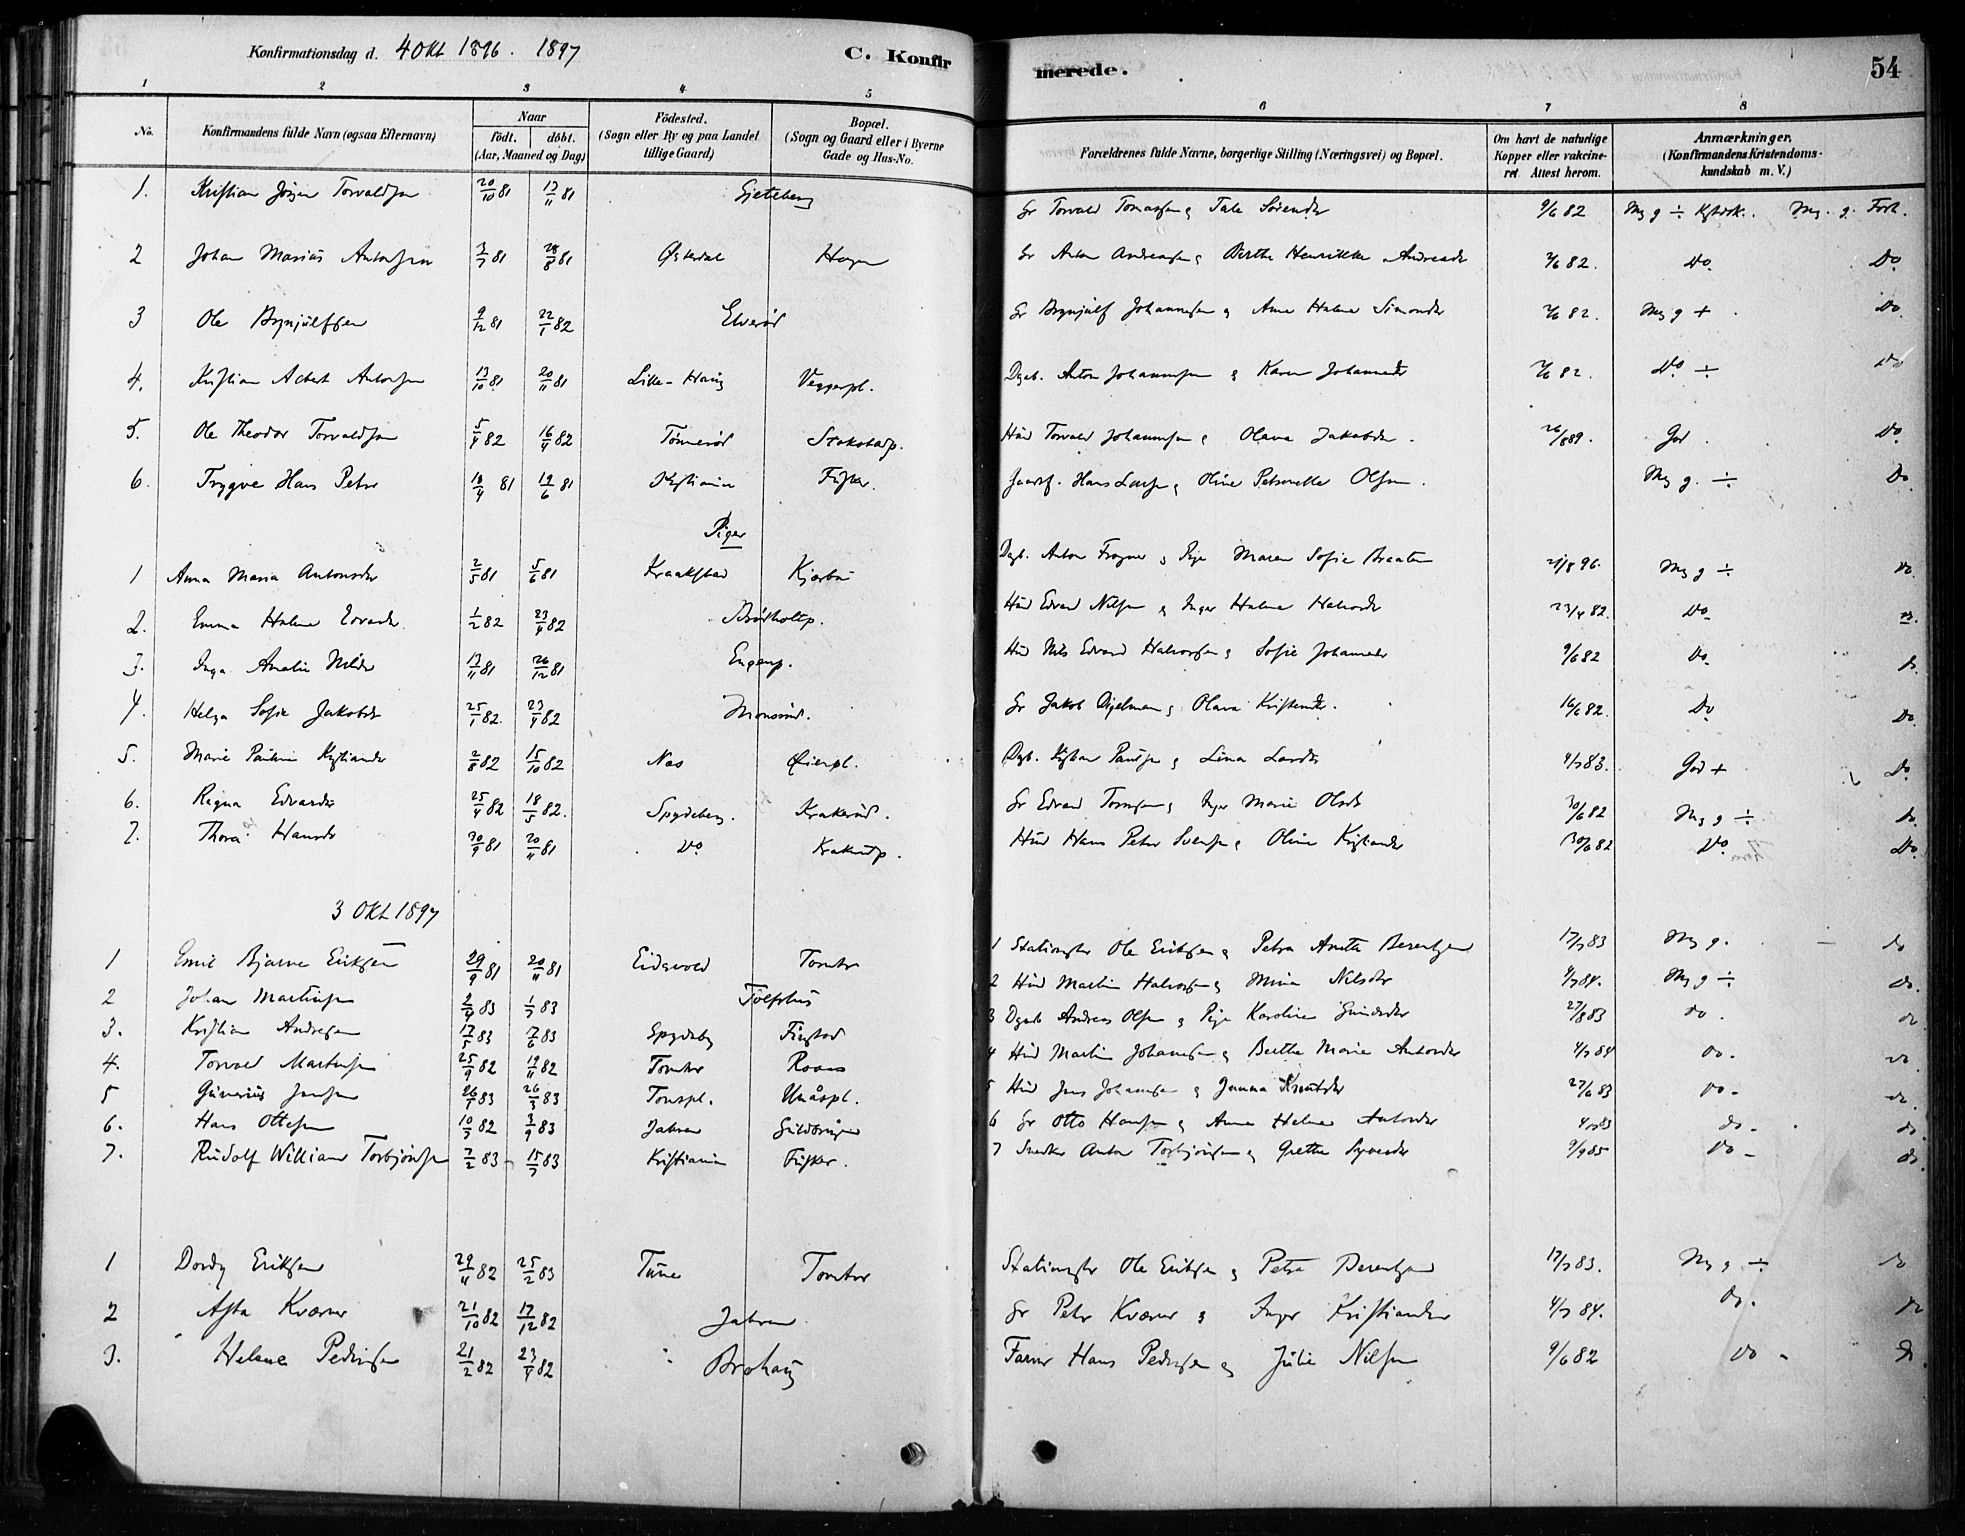 Konfirmationsdag d. 4 Okt 1896. 1897 C. Konfirmerede. 54
1 2 3 4 5 6 7 8
No. Konfirmandens fulde Navn (ogsaa Efternavn) Naar født. døbt. (Aar, Maaned og Dag) Födested. (Sogn eller By og paa Landet tillige Gaard) Bopæl. (Sogn og Gaard eller i Byerne Gade og Hus-No. Forældrenes fulde Navne, borgerlige Stilling (Næringsvei) og Bopæl. Om havt de naturlige Kopper eller vakcineret. Attest herom. Anmærkninger. (Konfirmandens Kristendomskundskab m. V.)
1. Kristian Jörgen Torvaldsen 20/10 81 13/11 81 Gjeteberg Gr Torvald Tomassen & Tale Sörensdr 9/6 82 Mg g ÷ Mg. g. Forh.
2 Johan Marius Antonsen 3/7 81 28/8 81 Østerdal Hagen Gr Anton Andreassen & Berthe Henrikke Andreasdr 2/6 82. Do. Do
3 Ole Brynjulfsen 9/12 81 22/1 82 Elveröd Gr Brynjulf Johannesen & Anne Helene Simonsdr 2/6 82. Mg g + Do.
4. Kristian Albert Antonsen 13/10 81 20/11 81 Lille-Haug Veggerpl. Dgab. Anton Johannesen & Karen Johannesdr 2/6 82. Do ÷ Do
5. Ole Theodor Torvaldsen 5/4 82 16/4 82 Tömmeröd Husm Torvald Johannesen & Olava Jakobsdr. 26/8 89. God. Do
6. Trygve Hans Peter 18/4 81 19/6 81 Kristiania Fusker. Hans Larsen & Oline Petronelle Olsen. Mg g. ÷ Do
Piger
1 Anna Maria Antonsdr 2/5 81 5/6 81 Kraakstad Kjærbu Dagl. Anton Frogner & Pige Maren Sofie Braaten 21/8 96. Mg g ÷ Do.
2. Emma Helene Edvardsdr. 1/2 82 23/4 82 Husm Edvard Nilsen & Inger Helene Halvorsdr 23/4 82. Do
3. Inga Amalie Nilsdr 13/11 81 26/12 81 Engerp. Husm Nils Edvard Halvorsen & Sofie Johannesdr 9/6 82 Do. do
4. Helga Sofie Jakobsdr 25/1 82. 23/4 82 Monsrud. Gr Jakob Digelman & Olava Kristensdr. 16/6 82. Do Do.
5. Marie Pauline Kristiansdr 2/8 82 15/10 82 Nes Øierpl. Dagb. Kristian Paulsen & Lina Larsdr 4/7 83. God + Do.
6. Ragna Edvardsdr 25/4 82 18/5 82. Spydeberg. Krakeröd. Gr Edvard Tomesen & Inger Marie Olsdr 30/6 82 Mg g ÷ do.
7. Thora Hansdr 30/9 81 20/11 81 Do Krakerödp. Husm Hans Peter Svensen & Oline Kristiansdr 30/6 82 Do Do.
3 Okt 1897
1 Emil Bjarne Eriksen 29/9 81 20/11 81 Eidsvold Tomter 1 Stationsmster Ole Eriksen & Petra Anette Berentzen 17/7 83 Mg g. do
2 Johan Martinsen 2/4 83 1/7 83 Tolfshus 2 Husm Martin Halvorsen & Mina Nilsdtr 4/7 84. Mg g ÷ do.
3. Kristian Andresen 17/5 83 17/6 83 Spydeberg Finstad 3 Dgarb Andreas Olsen & Pige Karoline Gundersdtr 27/8 83 do. do
4. Torvald Martinsen 25/9 82 19/11 82 Tomter Roaas 4 Husm Martin Johannesen & Berthe Marie Antonsdr 4/7 84 Do. do
5 Gunerius Jensen 26/1 83 26/3 83 Tomtpl. 5 Husm Jens Johannesen & Janna Knutsdtr 27/6 83 Do. do.
6. Hans Ottesen 10/7 82 3/9 83 Jahren Guldbringen 6 Gr Otto Hansen & Anne Helene Antonsdtr 4/7 83 do. do.
7. Rudolf William Torbjörnsen 2/2 83 15/7 83 Kristiania Fusker. 7 Snedker Anton Torbjörnsen & Grethe Syversdtr 9/9 85 Do. do.
1 Dordy Eriksen 29/11 82 25/2 83 Tune Tomter Stationsmster Ole Eriksen & Petra Berentzen 17/7 83. Mg g ÷ do
2 Asta Kværner 21/10 82 17/12 82 Jahren Gr Peter Kværner & Inger Kristiansdtr 4/7 84. Do. do
3. Helene Pedersen 21/2 82 23/4 82 Brohaug Farver Hans Pedersen & Julie Nilsen 9/6 82 Do. do